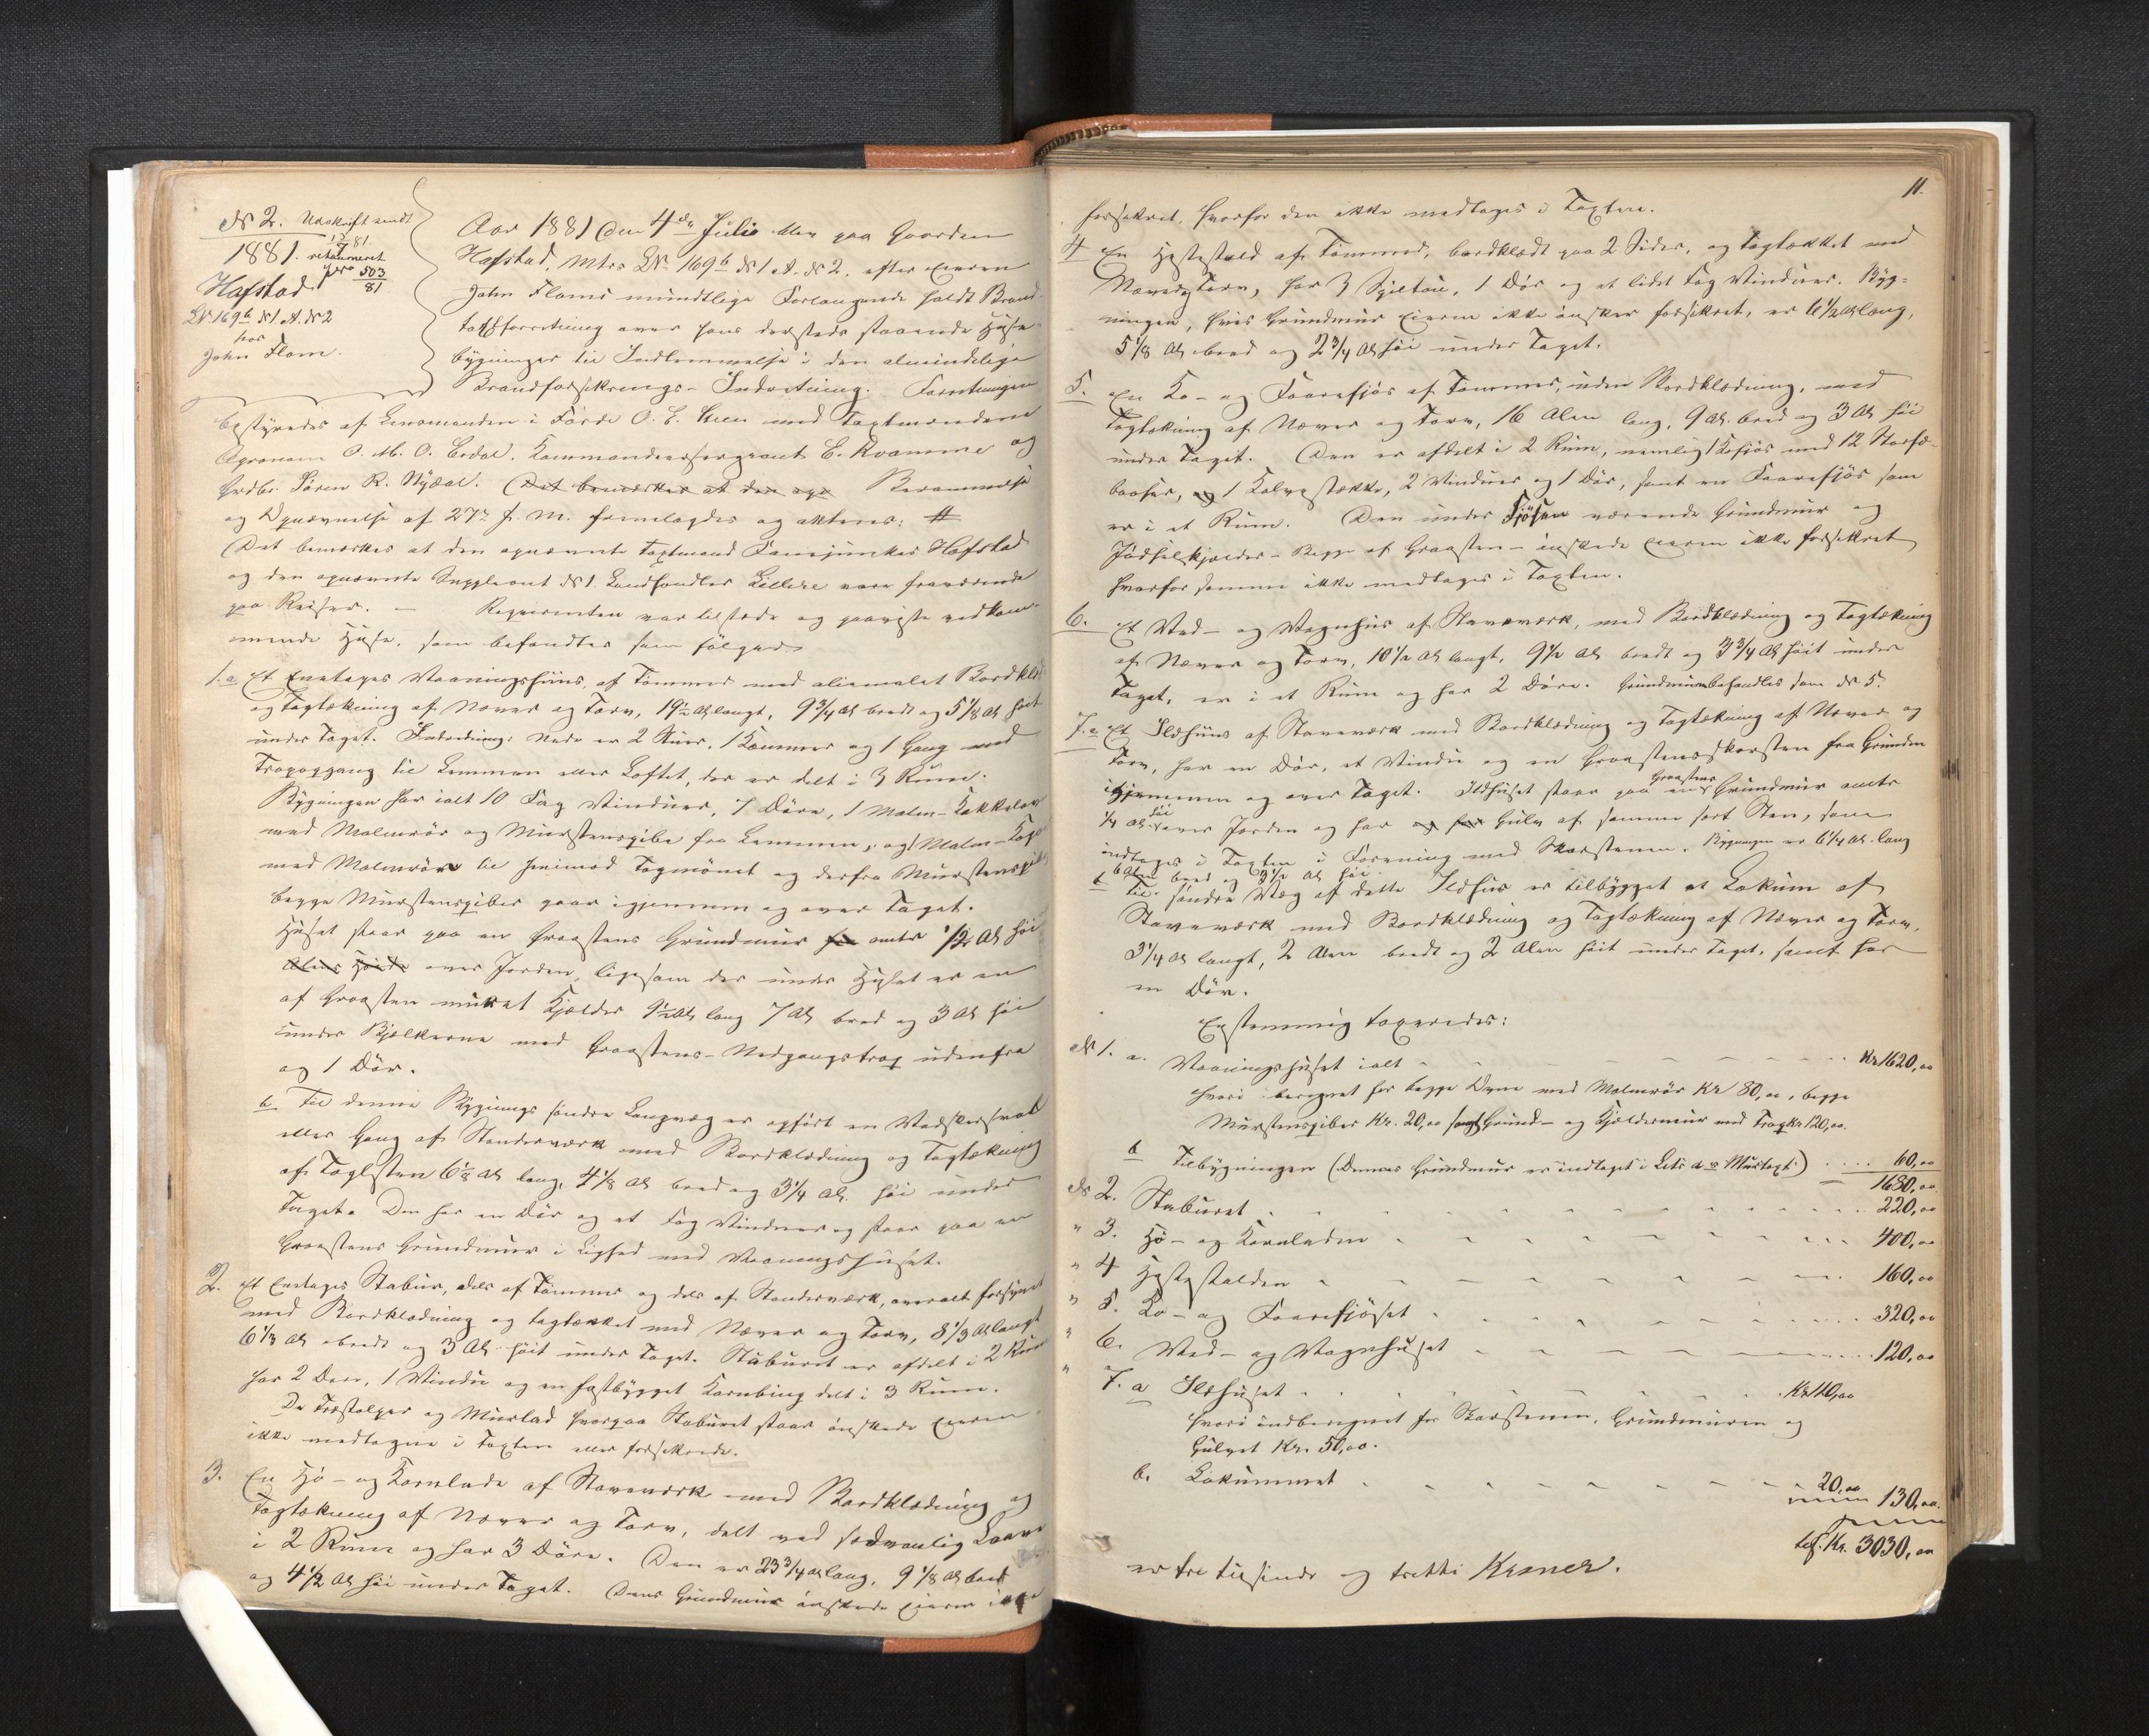 No 2. Udskrift sendt
13/7 81.
1881. retourneret
pro 503/81
Hafstad
LNo 169b No 1 A. No 2
hos
John Flom.
Aar 1881 den 4de Julio blev paa Gaarden
Hafstad, Mtr. LNo 169b No 1 A. No 2. efter Eieren
John Floms mundtlige Forlangende holdt Brand-
taxtforretning over hans dersteds staaende Huse-
bygninger til Indlemmelse i den almindelige
Brandforsikrings-Indretning. Forretningen
bestyredes af Lensmanden i Førde O. E. med Taxtmændene
Agronom O. M. O. Erdal, Kommandeersergeant E. Kvamme og
Grdbr. Søren R. Nydal. (Det bemærkes at den opn Berammelse
og Opnævnelse af 27de f. M. fremlagdes og akteres: #
(Det bemærkes at den opnævnte Taxtmand Fanejunker Hafstad
og den opnævnte Suppleant No 1 Landhandler vare fraværende
paa Reiser. — Requirenten var tilstede og paaviste vedkom-
mende Huse, som befandtes som følger:
1. a Et Enetages Vaaningshuus af Tømmer med oliemalet Bordklæd
og Tagtækning af Næver og Torv, 19½ Al langt, 9¾ Al bredt og 5⅛ Al høit
under Taget. Indredning: Nede er 2 Stuer, 1 Kammer og 1 Gang med
Trapopgang til Lemmen eller Loftet, der er delt i 3 Rum.
Bygningen har ialt 10 Fag Vinduer, 7 Døre, 1 Malm-Kakkelovn
med Malmrør og Murstenspibe fra Lemmen, og 1 Malm-Kog
med Malmrør til henimod Tagmønet og derfra Murstenspibe
begge Murstenspiber gaar igjennem og over Taget.
Huset staar paa en Graastens Grundmur fra omtr ½ Al høi
Alens Høide over Jorden, ligesom der under Huset er en
af Graasten muret Kjælder 9½ Al lang 7 Al bred og 3 Al høi
under Bjælkerne med Graastens-Nedgangstrap udenfra
og 1 Dør.
b Til denne Bygnings søndre Langvæg er opført en Vadskersval
eller Gang af Standerværk med Bordklædning og Tagtækning
af Taglsten 6½ Al lang, 4⅛ Al bred og 3¼ Al. høi under
Taget. Den har en Dør og et Fag Vinduer og staar paa en
Graastens Grundmur i Lighed med Vaaningshuset.
2. Et Enetages Stabur, dels af Tømmer og dels af Standerværk, overalt forsynet
med Bordklædning og tagtækket med Næver og Torv, 8⅓ Al langt
6⅓ Al bredt og 3 Al høit under Taget. Staburet er afdelt i 2 Rum
har 2 Døre, 1 Vindu og en fastbygget Kornbing delt i 3 Rum.
De Træstolper og Murlad hvorpaa Staburet staar ønskede Eieren
ikke medtagne i Taxten eller forsikrede.
3. En Hø- og Kornlade af Staveværk med Bordklædning og
Tagtækning af Næver og Torv, delt ved sedvanlig Laave
i 2 Rum og har 3 Døre. Den er 23¾ Al lang, 9⅛ Al bred
og 4½ Al høi under Taget. Dens Grundmur ønskede Eieren ikke
11.
forsikret, hvorfor den ikke medtages i Taxten.
4 En Hestestald af Tømmer, bordklædt paa 2 Sider, og tagtækket med
Næver og Torv, har 3 Spiltau, 1 Dør og et lidet Fag Vinduer. Byg-
ningen, hvis Grundmur Eieren ikke ønsker forsikret, er 6½ Al lang,
5⅛ Al bred og 2¾ Al høi under Taget.
5. En Ko- og Faarefjøs af Tømmer, uden Bordklædning, med
Tagtækning af Næver og Torv, 16 Alen lang, 9 Al. bred og 3 Al høi
under Taget. Den er afdelt i 2 Rum, nemlig 1 Kofjøs med 12 Storfæ-
baaser, og 1 Kalvestække, 2 Vinduer og 1 Dør, samt en Faarefjøs som
er i et Rum. Den under Fjøsen værende Grundmur og
Gjødselkjælder - Begge af Graasten - ønskede Eieren ikke forsikret
hvorfor samme ikke medtages i Taxten.
6. Et Ved- og Vognhus af Staveværk, med Bordklædning og Tagtækning
af Næver og Torv, 10½ Al langt, 9½ Al bredt og 3¾ Al høit under
Taget, er i et Rum og har 2 Døre. Grundmuren behandles som No 5.
7. a Et Ildhuus af Staveværk med Bordklædning og Tagtækning af Næver og
Torv, har en Dør, et Vindu og en Graastensskorsten fra Grunden
igjennem og over Taget. Ildhuset staar paa en Graastens Grundmur omtr
¼ Al høi over Jorden og har og har Gulv af samme sort Sten, som
indtages i Taxten i Forening med Skorstenen. Bygningen er 6¼ Al. lang
6 Alen bred og 3½ Al høi.
b Til søndre Væg af dette Ildhus er tilbygget et Lokum af
Staveværk med Bordklædning og Tagtækning af Næver og Torv,
3¼ Al langt, 2 Alen bredt og 2 Alen høit under Taget, samt har
en Dør.
Enstemmig taxeredes:
No 1. a. Vaaningshuset ialt Kr 1620,00
hvori beregnet for begge Ovne med Malmrør Kr 80,00, begge
Murstenspiber Kr. 20,00 samt Grund- og Kjeldermur med Trap Kr 120,00.
b Tilbygningen (Dennes Grundmur er indtaget i Litr a's Murtaxt) 60,00
1680,00
No 2. Staburet 220,00
" 3. Hø- og Kornladen 400,00
" 4 Hestestalden 160,00
" 5. Ko- og Faarefjøset 320,00
" 6. Ved- og Vognhuset 120,00
" 7. a Ildhuset Kr 110,00
hvori indberegnet for Skorstenen, Grundmuren og
Gulvet Kr. 50,00.
b. Lokummet 20,00
130,00.
tils. Kr. 3030,00
er tre tusinde og tretti Kroner.